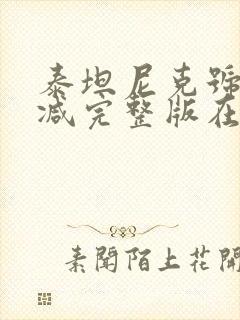 泰坦尼克號
减完整版在
素聞陌上花開